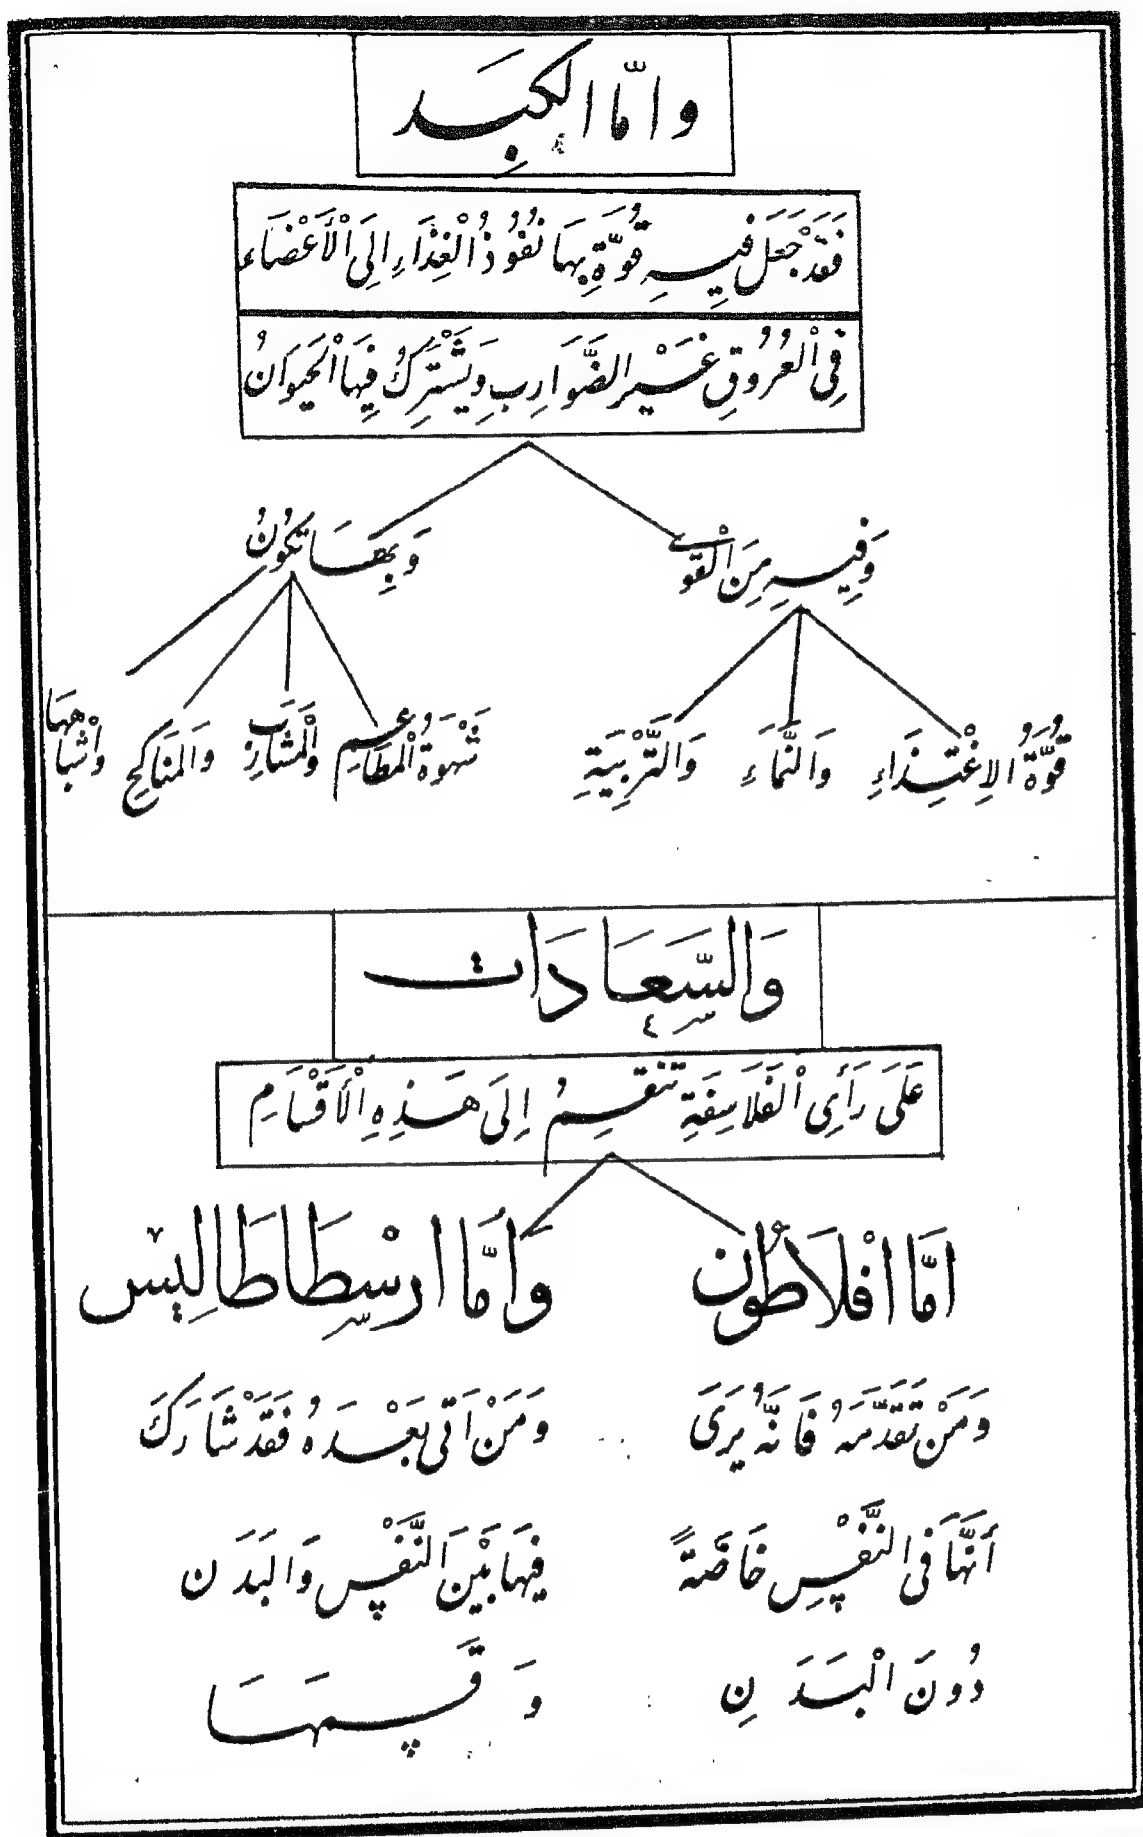 وَامَّا الكَبِد
فَقَدْ جَعَلَ فِيهِ قُوَّةً بِهَا نُفُوذُ الْغِذَاءِ اِلَى الْأَعْضَاء
فِى الْعُرُوقِ غَيْرِ الضَّوَارِبِ وَيَشْتَرِكُ فِيهَا الْحَيَوَانُ
وَفِيهِ مِنَ الْقُوٰى
قُوَّةُ الاِغْتِذَاءِ
وَالنَّمَاءِ
وَالتَّرْبِيَةِ
وَبِهَا تَكُونُ
شَهْوَةُ الْمَطَاعِمِ
وَالْمَشَارِبِ
وَالْمَنَاكِحِ
وَاَشْبَاهِهَا
وَالسَّعَادَات
عَلَى رَأىِ الْفَلَاسِفَةِ تَنْقَسِمُ اِلَى هَذِهِ الْأَقْسَامِ
اَمَّا اَفْلَاطُون
وَمَنْ تَقَدَّمَهُ فَاِنَّهُ يَرَى
أَنَّهَا فِى النَّفْسِ خَاصَّةً
دُونَ الْبَدَنِ
وَاَمَّا ارِسْطَاطَالِيس
وَمَنْ اَتَى بَعْدَهُ فَقَدْ شَارَكَ
فِيهَا بَيْنَ النَّفْسِ وَالبَدَن
وَقَسَمَهَا